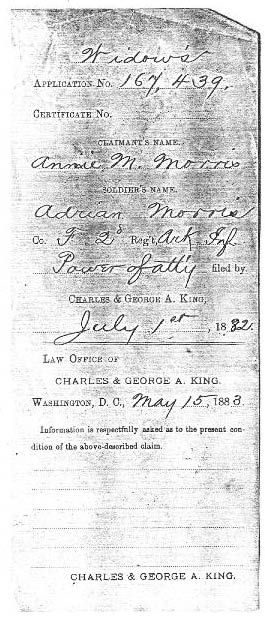 Widow's
APPLICATION No. 167,439.
CERTIFICATE No.
CLAIMANT'S NAME.
Annie M. Morris
SOLDIER'S NAME.
Adrian Morris
Co. F 2d Reg't, Ark Inf
Power of att'y filed by
CHARLES & GEORGE A. KING,
July 1st, 1882.
LAW OFFICE OF
CHARLES & GEORGE A. KING.
WASHINGTON, D. C., May 15, 1883.
Information is respectfully asked as to the present con-
dition of the above-described claim.
CHARLES & GEORGE A. KING.